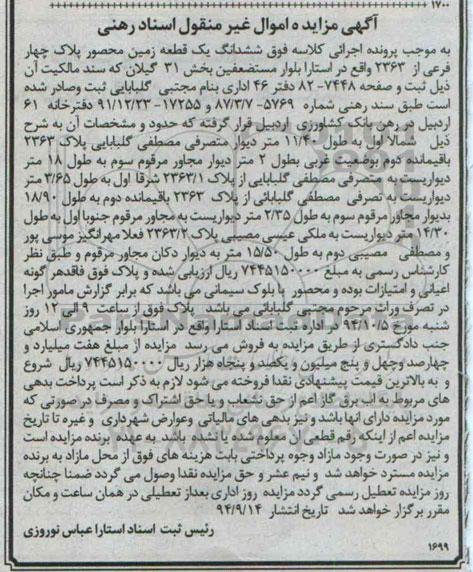 ۱۷۰۰
آگهی مزایده اموال غیر منقول اسناد رهنی
به موجب پرونده اجرائی کلاسه فوق ششدانگ یک قطعه زمین محصور پلاک چهار
فرعی از ۲۳۶۳ واقع در استارا بلوار مستضعفین بخش ۳۱ گیلان که سند مالکیت آن
ذیل ثبت و صفحه ۷۴۴۸- ۸۲ دفتر ۴۶ اداری بنام مجتبی گلبابایی ثبت وصادر شده
است طبق سند رهنی شماره ۵۷۶۹- ۸۷/۳/۷ و ۱۷۲۵۵- ۹۱/۱۲/۲۳ دفترخانه ۶۱
اردبیل در رهن بانک کشاورزی اردبیل قرار گرفته که حدود و مشخصات آن به شرح
ذیل شمالا اول به طول ۱۱/۴۰ متر دیوار متصرفی مصطفی گلبابایی پلاک ۲۳۶۳
باقیمانده دوم بوضعیت غربی بطول ۲ متر دیوار مجاور مرقوم سوم به طول ۱۸ متر
دیواریست به متصرفی مصطفی گلبابایی از پلاک ۲۳۶۳/۱ شرقا اول به طول ۳/۶۵ متر
دیواریست به تصرفی مصطفی گلبابائی از پلاک ۲۳۶۳ باقیمانده دوم به طول ۱۸/۹۰
بدیوار مجاور مرقوم سوم به طول ۲/۳۵ متر دیواریست به مجاور مرقوم جنوبا اول به طول
۱۴/۳۰ متر دیواریست به ملکی عیسی مصیبی پلاک ۲۳۶۳/۲ فعلا مهرانگیز موسی پور
و مصطفی مصیبی دوم به طول ۱۵/۵۰ متر به دیوار دکان مجاور مرقوم و طبق نظر
کارشناس رسمی به مبلغ ۷۴۴۵۱۵۰۰۰۰ ریال ارزیابی شده و پلاک فوق فاقدهر گونه
اعیانی و امتیازات بوده و محصور با بلوک سیمانی می باشد که برابر گزارش مامور اجرا
در تصرف وراث مرحوم مجتبی گلبابائی می باشد پلاک فوق از ساعت ۹ الی ۱۲ روز
شنبه مورخ ۹۴/۱۰/۵ در اداره ثبت اسناد استارا واقع در استارا بلوار جمهوری اسلامی
جنب دادگستری از طریق مزایده به فروش می رسد مزایده از مبلغ هفت میلیارد و
چهارصد وچهل و پنج میلیون و یکصد و پنجاه هزار ریال ۷۴۴۵۱۵۰۰۰۰ ریال شروع
و به بالاترین قیمت پیشنهادی نقدا فروخته می شود لازم به ذکر است پرداخت بدهی
های مربوط به اب برق گاز اعم از حق نشعاب و یا حق اشتراک و مصرف در صورتی که
مورد مزایده دارای انها باشد و نیز بدهی های مالیاتی وعوارض شهرداری و غیره تا تاریخ
مزایده اعم از اینکه رقم قطعی آن معلوم شده یا نشده باشد به عهده برنده مزایده است
و نیز در صورت وجود مازاد وجوه پرداختی بابت هزینه های فوق از محل مازاد به برنده
مزایده مسترد خواهد شد و نیم عشر و حق مزایده نقدا وصول می گردد ضمنا چنانچه
روز مزایده تعطیل رسمی گردد مزایده روز اداری بعداز تعطیلی در همان ساعت و مکان
مقرر برگزار خواهد شد تاریخ انتشار ۹۴/۹/۱۴
رئیس ثبت اسناد استارا عباس نوروزی
۱۶۹۹